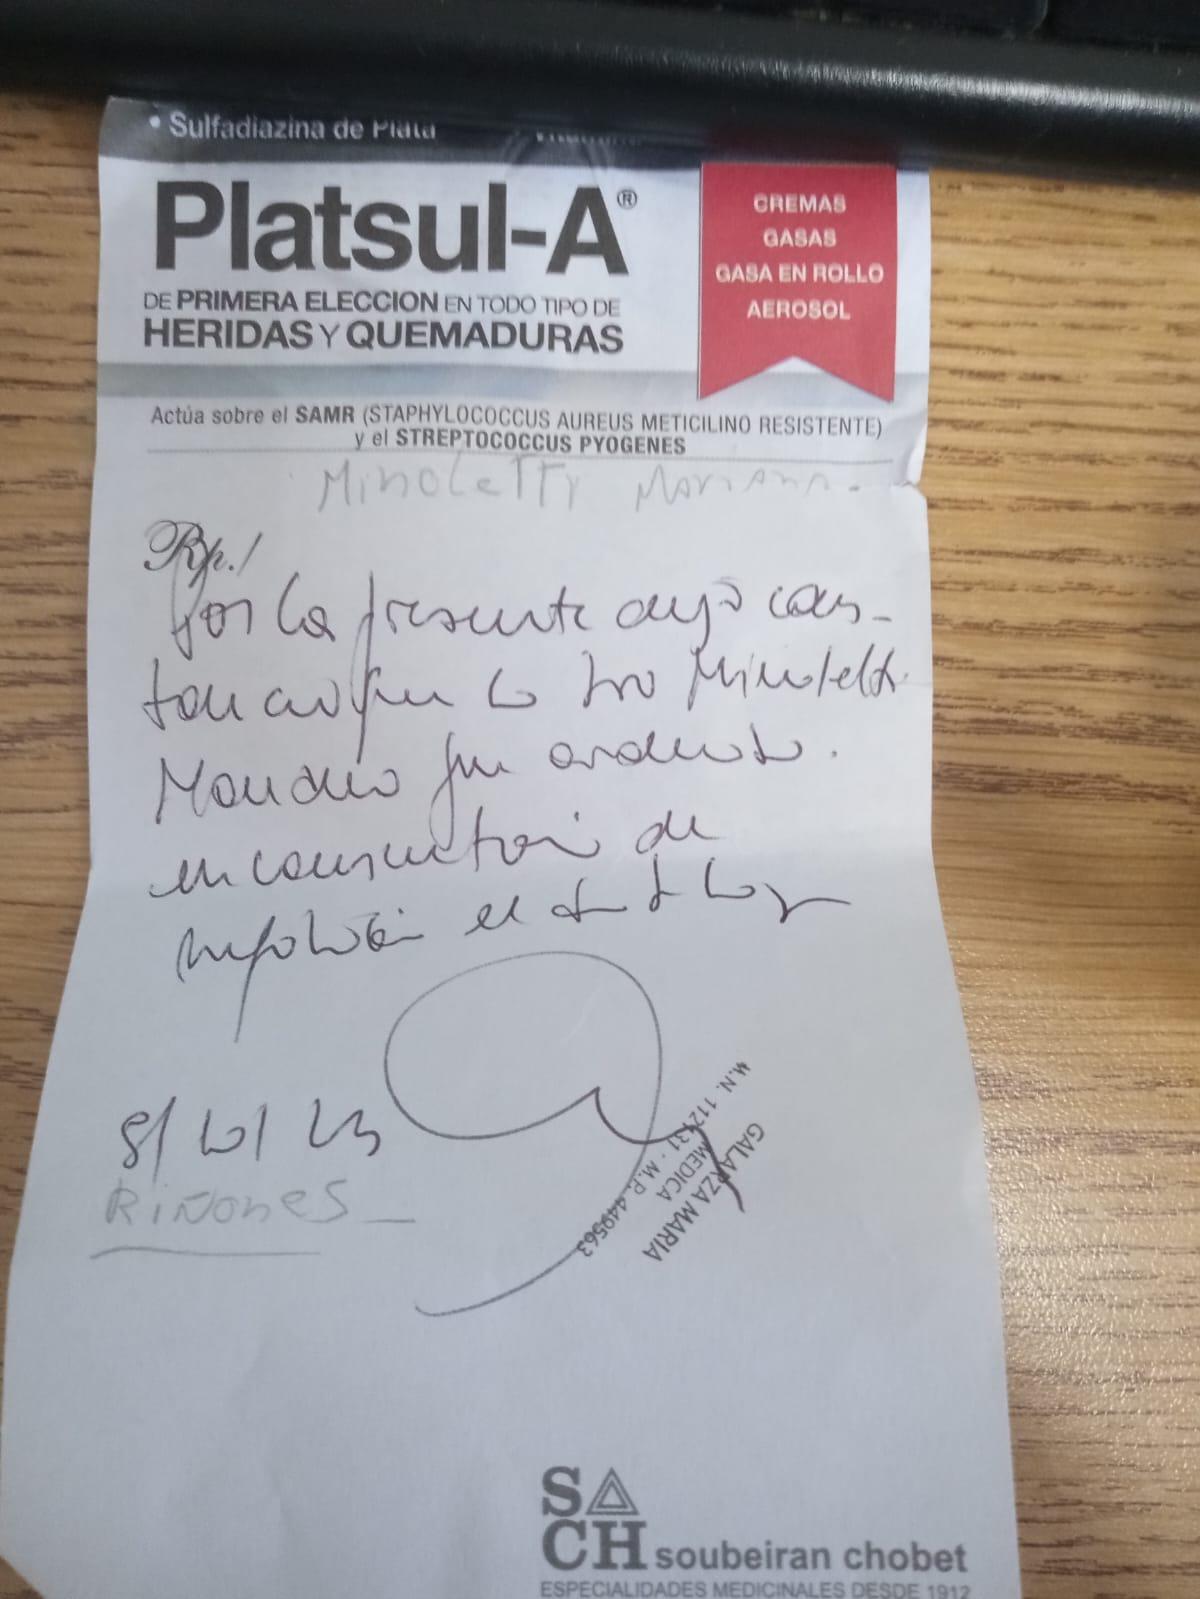 • Sulfadiazina de Plata
Platsul-A®
DE PRIMERA ELECCION EN TODO TIPO DE
HERIDAS Y QUEMADURAS
CREMAS
GASAS
GASA EN ROLLO
AEROSOL
Actúa sobre el SAMR (STAPHYLOCOCCUS AUREUS METICILINO RESISTENTE)
y el STREPTOCOCCUS PYOGENES
Minoletti Mariana.
Rp./
Por la presente dejo cons-
tancia que la Sra Minoletti
Mariana fue atendida
en consultorio de
nefrología el día de hoy
8/ /23
RIÑONES
GALARZA MARIA
MEDICA
M.P. 449563
SACH soubeiran chobet
ESPECIALIDADES MEDICINALES DESDE 1912